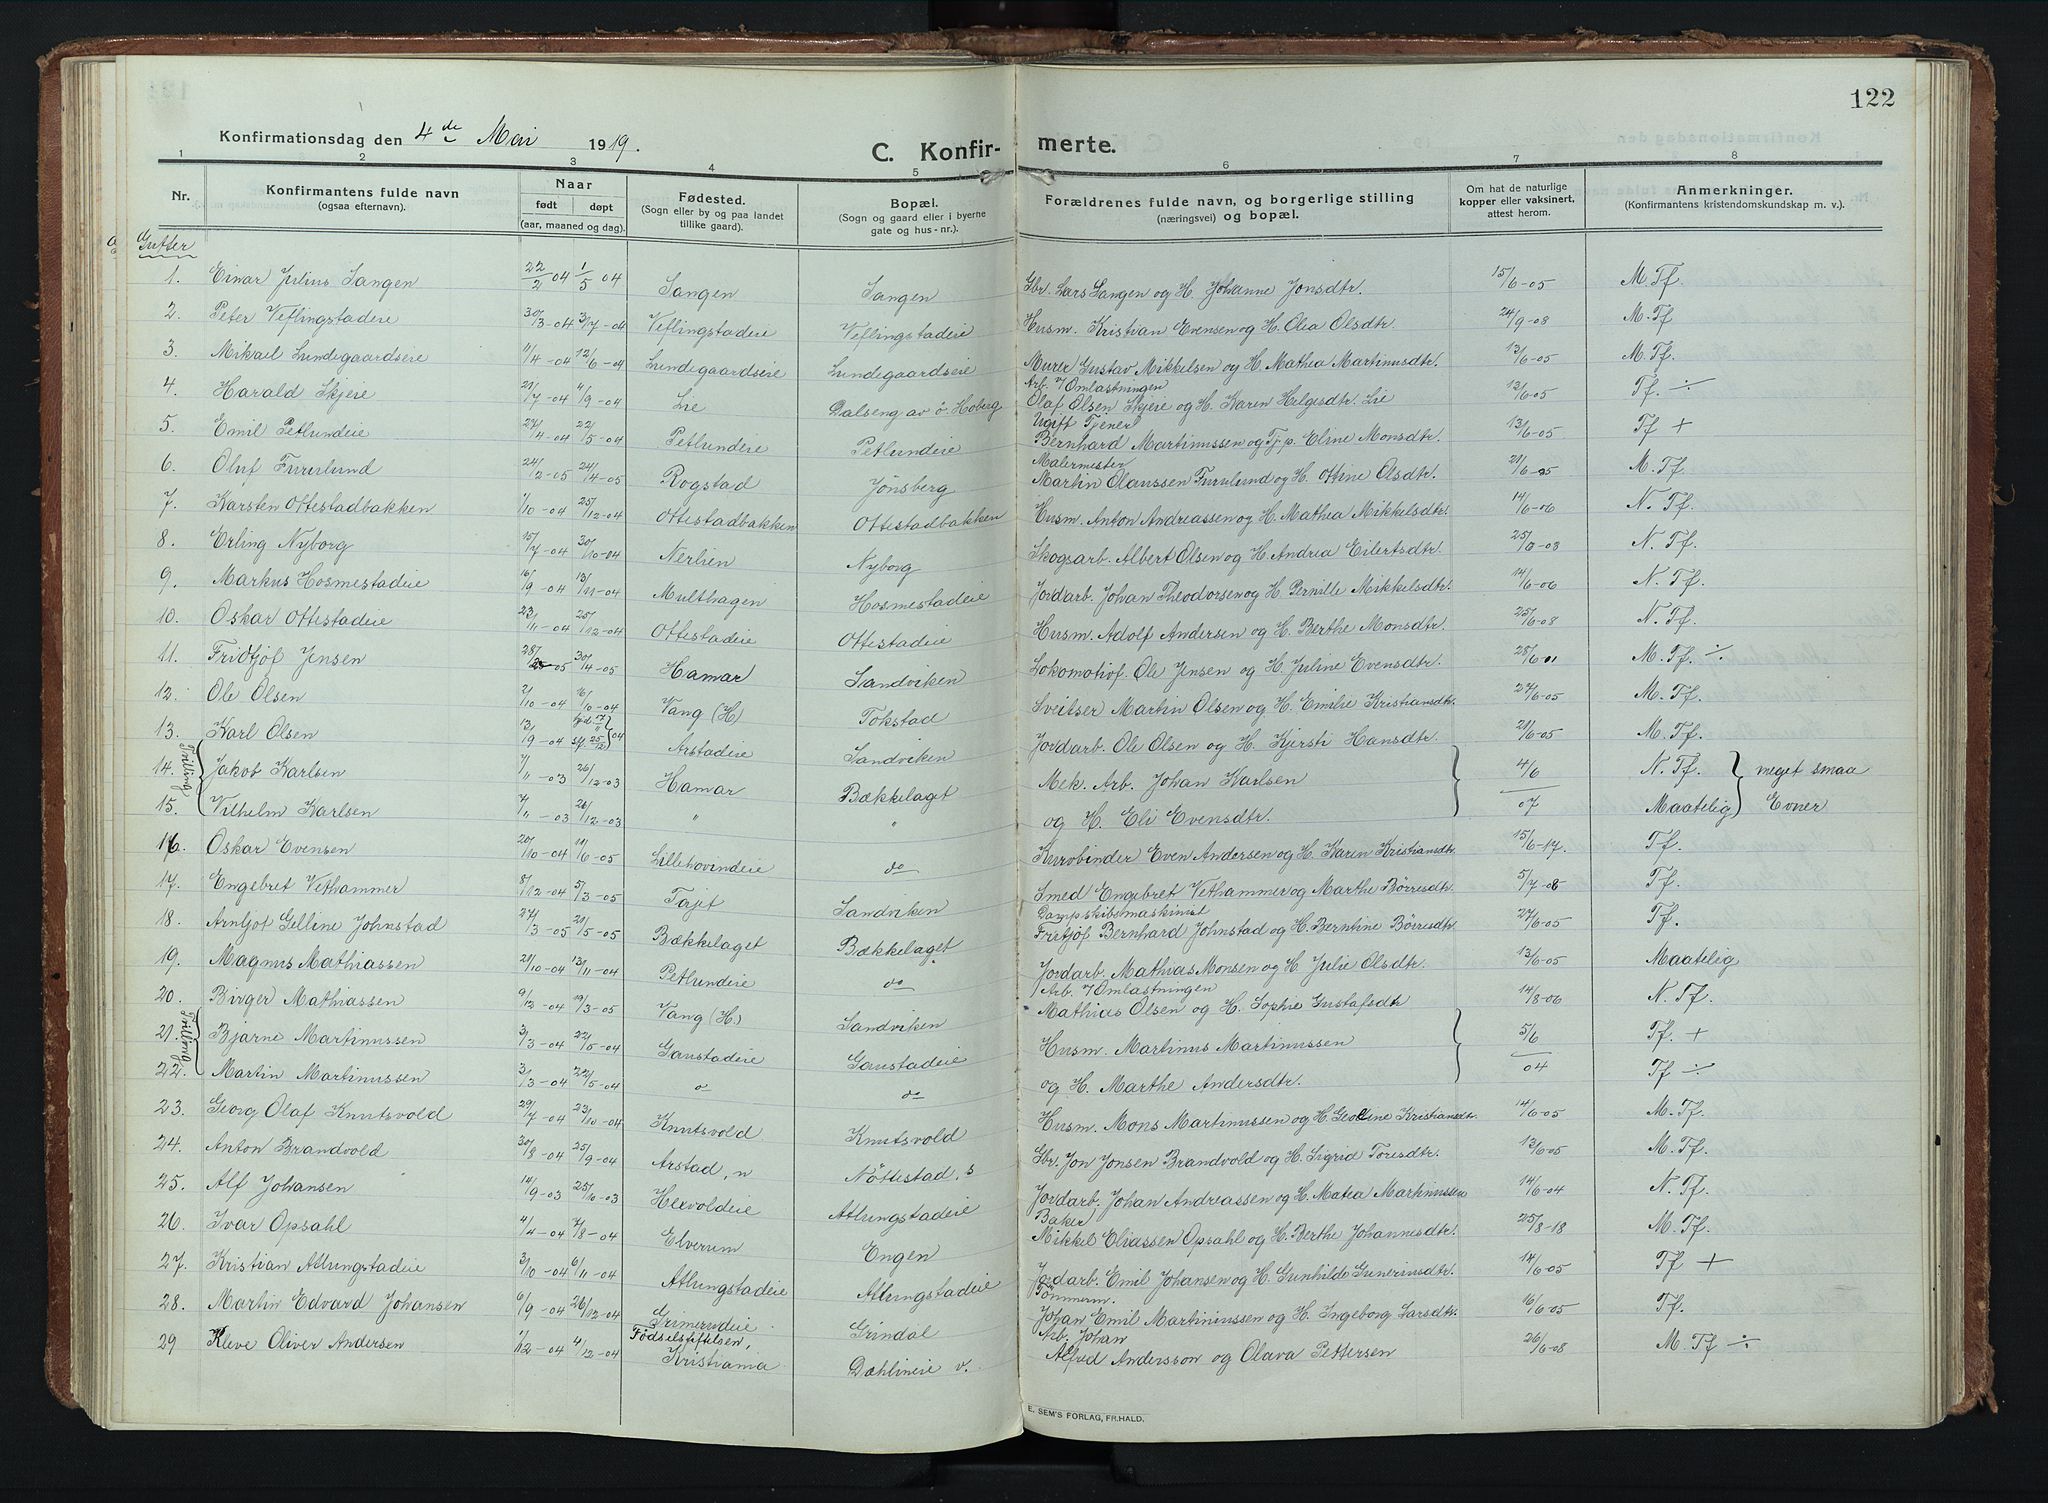 122
Konfirmationsdag den 4de Mai 1919.
C. Konfirmerte.
1 2 3 4 5 6 7 8
Nr. Konfirmantens fulde navn (ogsaa efternavn). Naar født døpt (aar, maaned og dag). Fødested. (Sogn eller by og paa landet tillike gaard). Bopæl. (Sogn og gaard eller i byerne gate og hus-nr.). Forældrenes fulde navn, og borgerlige stilling (næringsvei) og bopæl. Om hat de naturlige kopper eller vaksinert, attest herom. Anmerkninger. (Konfirmantens kristendomskundskap m. v.).
Gutter
1. Einar Julius Sangen 22/2 04 1/5 04 Sangen Sangen Gbr. Lars Sangen og H. Johanne Jonsdtr. 15/6-05 M. Tf.
2. Peter Veflingstadeie 30/3-04 3/7-04 Veflingstadeie Veflingstadeie Husm. Kristian Evensen og H. Olea Olsdtr. 24/9-08 M. Tf
3. Mikael Lundegaardseie 11/4-04 12/6-04 Lundegaardseie Lundegaardseie Murer Gustav Mikkelsen og H. Mathea Martinusdtr. 13/6-05 M. Tf.
4. Harald Skjeie 21/7-04 4/9-04 Lie Dalseng av ö. Hoberg Arb. v/Omlastningen Olaf Olsen Skjeie og H. Karen Helgesdtr. Lie 13/6-05 Tf ÷
5. Emil Petlundeie 27/4-04 22/5-04 Petlundeie Petlundeie Ugift Tjener Bernhard Martinussen og Tj.p. Eline Monsdtr. 13/6-05 Tf +
6. Oluf Furulund 24/12-05 24/4-05 Rogstad Jönsberg Malermester Martin Olaussen Furulund og H. Ottine Olsdtr. 21/6-05 M. Tf.
7. Karsten Ottestadbakken 1/10-04 25/12-04 Ottestadbakken Ottestadbakken Husm. Anton Andreassen og H. Mathea Mikkelsdtr. 14/6-06 N. Tf.
8. Erling Nyborg 15/7-04 30/10-04 Nerlien Nyborg Skogsarb. Albert Olsen og H. Andrea Eilertsdtr. N. Tf.
9. Markus Hosmestadeie 16/9-04 13/11-04 Multhagen Hosmestadeie Jordarb. Johan Theodorsen og H. Pernille Mikkelsdtr. 14/6-06 N. Tf.
10. Oskar Ottestadeie 23/11-04 25/12-04 Ottestadeie Ottestadeie Husm. Adolf Andersen og H. Berthe Monsdtr. 25/6-08 N. Tf.
11. Fridtjof Jensen 30/4-05 Hamar Sandviken Lokomotivf. Ole Jensen og H. Juline Evensdtr. M. Tf. ÷
12. Ole Olsen 2/10-04 16/10-04 Vang (H) Tokstad Sveitser Martin Olsen og H. Emilie Kristiansdtr. 27/6-05 M. Tf.
13. Karl Olsen Arstadeie Sandviken Jordarb. Ole Olsen og H. Kjersti Hansdtr. 21/6-05 M. Tf.
Tvilling
14. Jakob Karlsen 7/11-03 26/12-03 Hamar Bækkelaget Mek. Arb. Johan Karlsen 4/6 N. Tf. meget smaa
15. Vilhelm Karlsen 7/11-03 26/12-03 " " og H. Eli Evensdtr. 07 Maatelig Evner
16. Oskar Evensen 20/10-04 11/6-05 Lillehovindeie do Kurvbinder Even Andersen og H. Karen Kristiansdtr. 15/6-17. Tf.
17. Engebret Vethammer 8/12-04 5/3-05 Torjet Sandviken Smed Engebret Vethammer og Marthe Börresdtr. 5/7-08 Tf.
18. Arntjot Gelline Johnstad 27/3-05 21/5-05 Bækkelaget Bækkelaget Dampskibsmaskinist Fritjof Bernhard Johnstad og H. Berntine Börresdtr. 27/6-05 Tf.
19. Magnus Mathiassen 21/10-04 13/11-04 Petlundeie do Jordarb. Mathias Monsen og H. Julie Olsdtr. 13/6-05 Maatelig
20. Birger Mathiassen 9/12-04 19/3-05 Vang (H.) Sandviken Arb. v/Omlastningen Mathias Olsen og H. Sophie Gustafsdtr 14/8-06 N. Tf.
Tvilling
21. Bjarne Martinussen 3/3-04 22/5-04 Gaustadeie Gaustadeie Husm. Martinus Martinussen 5/6 Tf. +
22. Martin Martinussen 3/3-04 22/5-04 " do og H. Marthe Andersdtr. 04 Tf ÷
23. Georg Olaf Knutsvold 29/7-04 23/10-04 Knutsvold Knutsvold Husm. Mons Martinussen og H. Geoline Kristiansdtr. 14/6-05 M. Tf.
24. Anton Brandvold 30/8-04 25/9-04 Arstad, n Nöttestad, s Gbr. Jon Jonsen Brandvold og H. Sigrid Toresdtr. 13/6-05 M. Tf.
25. Alf Johansen 14/9-03 25/10-03 Hervoldeie Atlungstadeie Jordarb. Johan Andreassen og H. Matea Martinussen 14/6-04 N. Tf.
26. Ivar Opsahl 4/4-04 7/8-04 Elverum Engen Baker Mikkel Eliassen Opsahl og H. Berthe Johannesdtr. 25/8-18 M. Tf.
27. Kristian Atlungstadeie 3/10-04 6/11-04 Atlungstadeie Atlungstadeie Jordarb. Emil Johansen og H. Gunhilde Guneriusdtr. 14/6-05 Tf +
28. Martin Edvard Johansen 6/9-04 26/12-04 Grimerudeie Grindal Tömmerm. Johan Emil Martiniussen og H. Ingeborg Larsdtr. 16/6-05 Tf.
29 Kleve Oliver Andersen 1/12-04 4/12-04 Födselsstiftelsen, Kristiania Dæhlineie v. Arb. Johan Alfred Andersson og Olava Pettersen 26/6-08 M. Tf ÷
E. SEM'S FORLAG, FR.HALD.